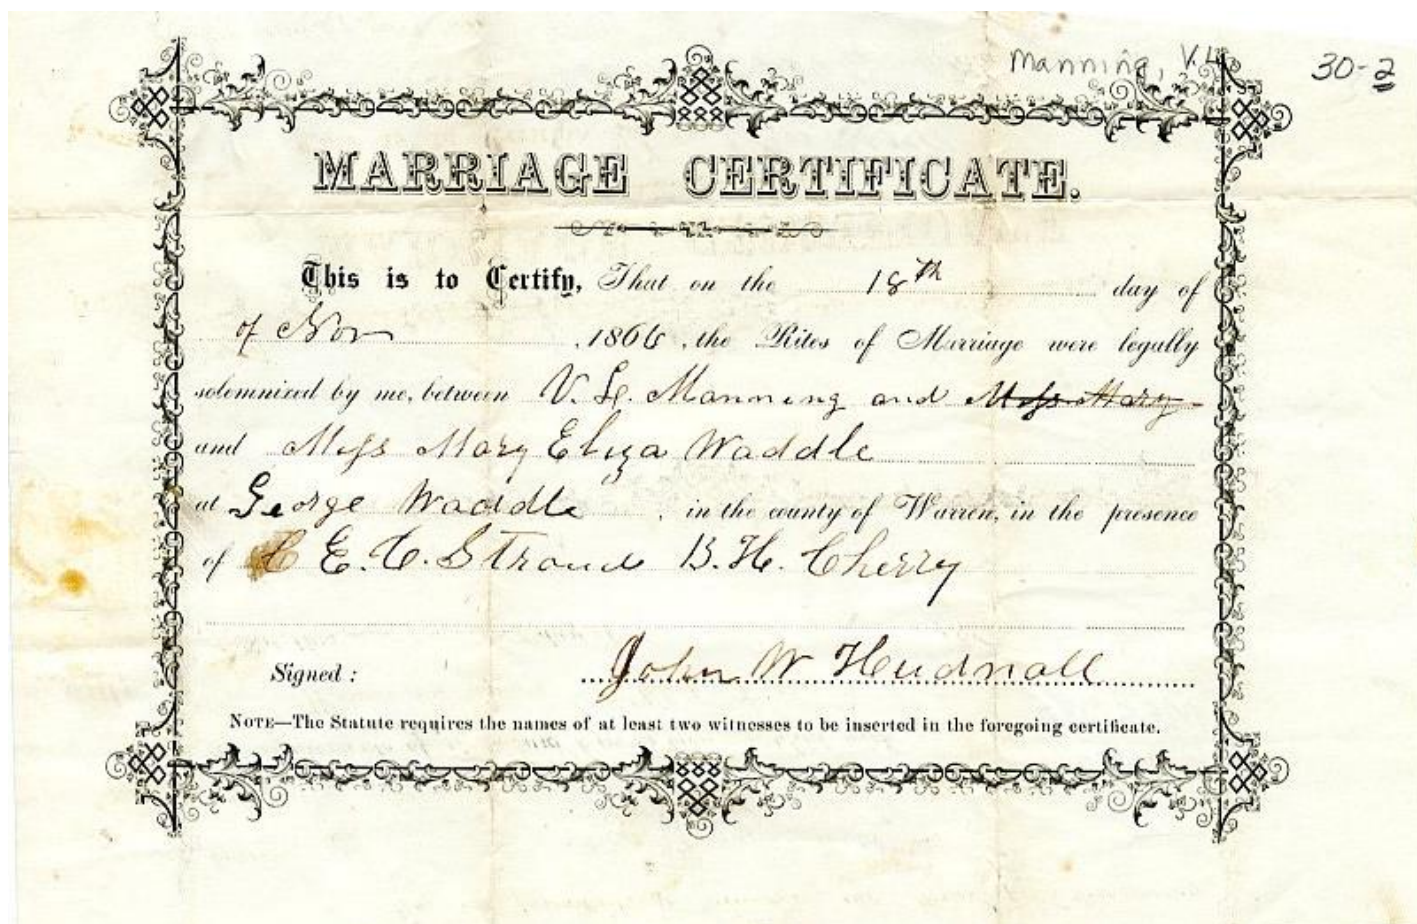 Manning, V. L. 30-2
MARRIAGE CERTIFICATE.
This is to Certify, That on the 18th day of
of Nov , 1866, the Rites of Marriage were legally
solemnized by me, between V. L. Manning and Miss Mary
and Miss Mary Eliza Waddle
at George Waddle , in the county of Warren, in the presence
of C E. C. Stroud B. H. Cherry
Signed : John W Hudnall
NOTE—The Statute requires the names of at least two witnesses to be inserted in the foregoing certificate.